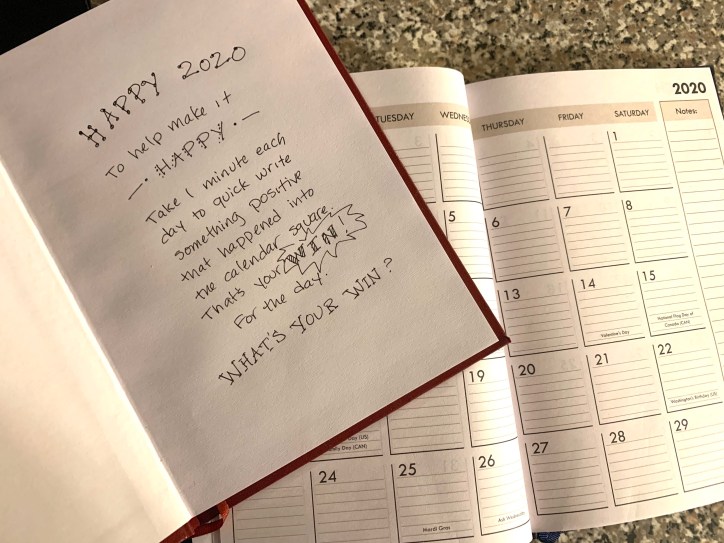 HAPPY 2020
To help make it
— HAPPY. —
Take 1 minute each
day to quick write
something positive
that happened into
the calendar square.
That's your WIN!
For the day.
WHAT'S YOUR WIN?
2020
TUESDAY
THURSDAY FRIDAY SATURDAY Notes:
1
5 6 7 8
13 14 15
Valentine's Day
National Flag Day of
Canada (CAN)
19 20 21 22
Washington's Birthday (US)
Day (US)
Day (CAN)
24 25 26 27 28 29
Mardi Gras